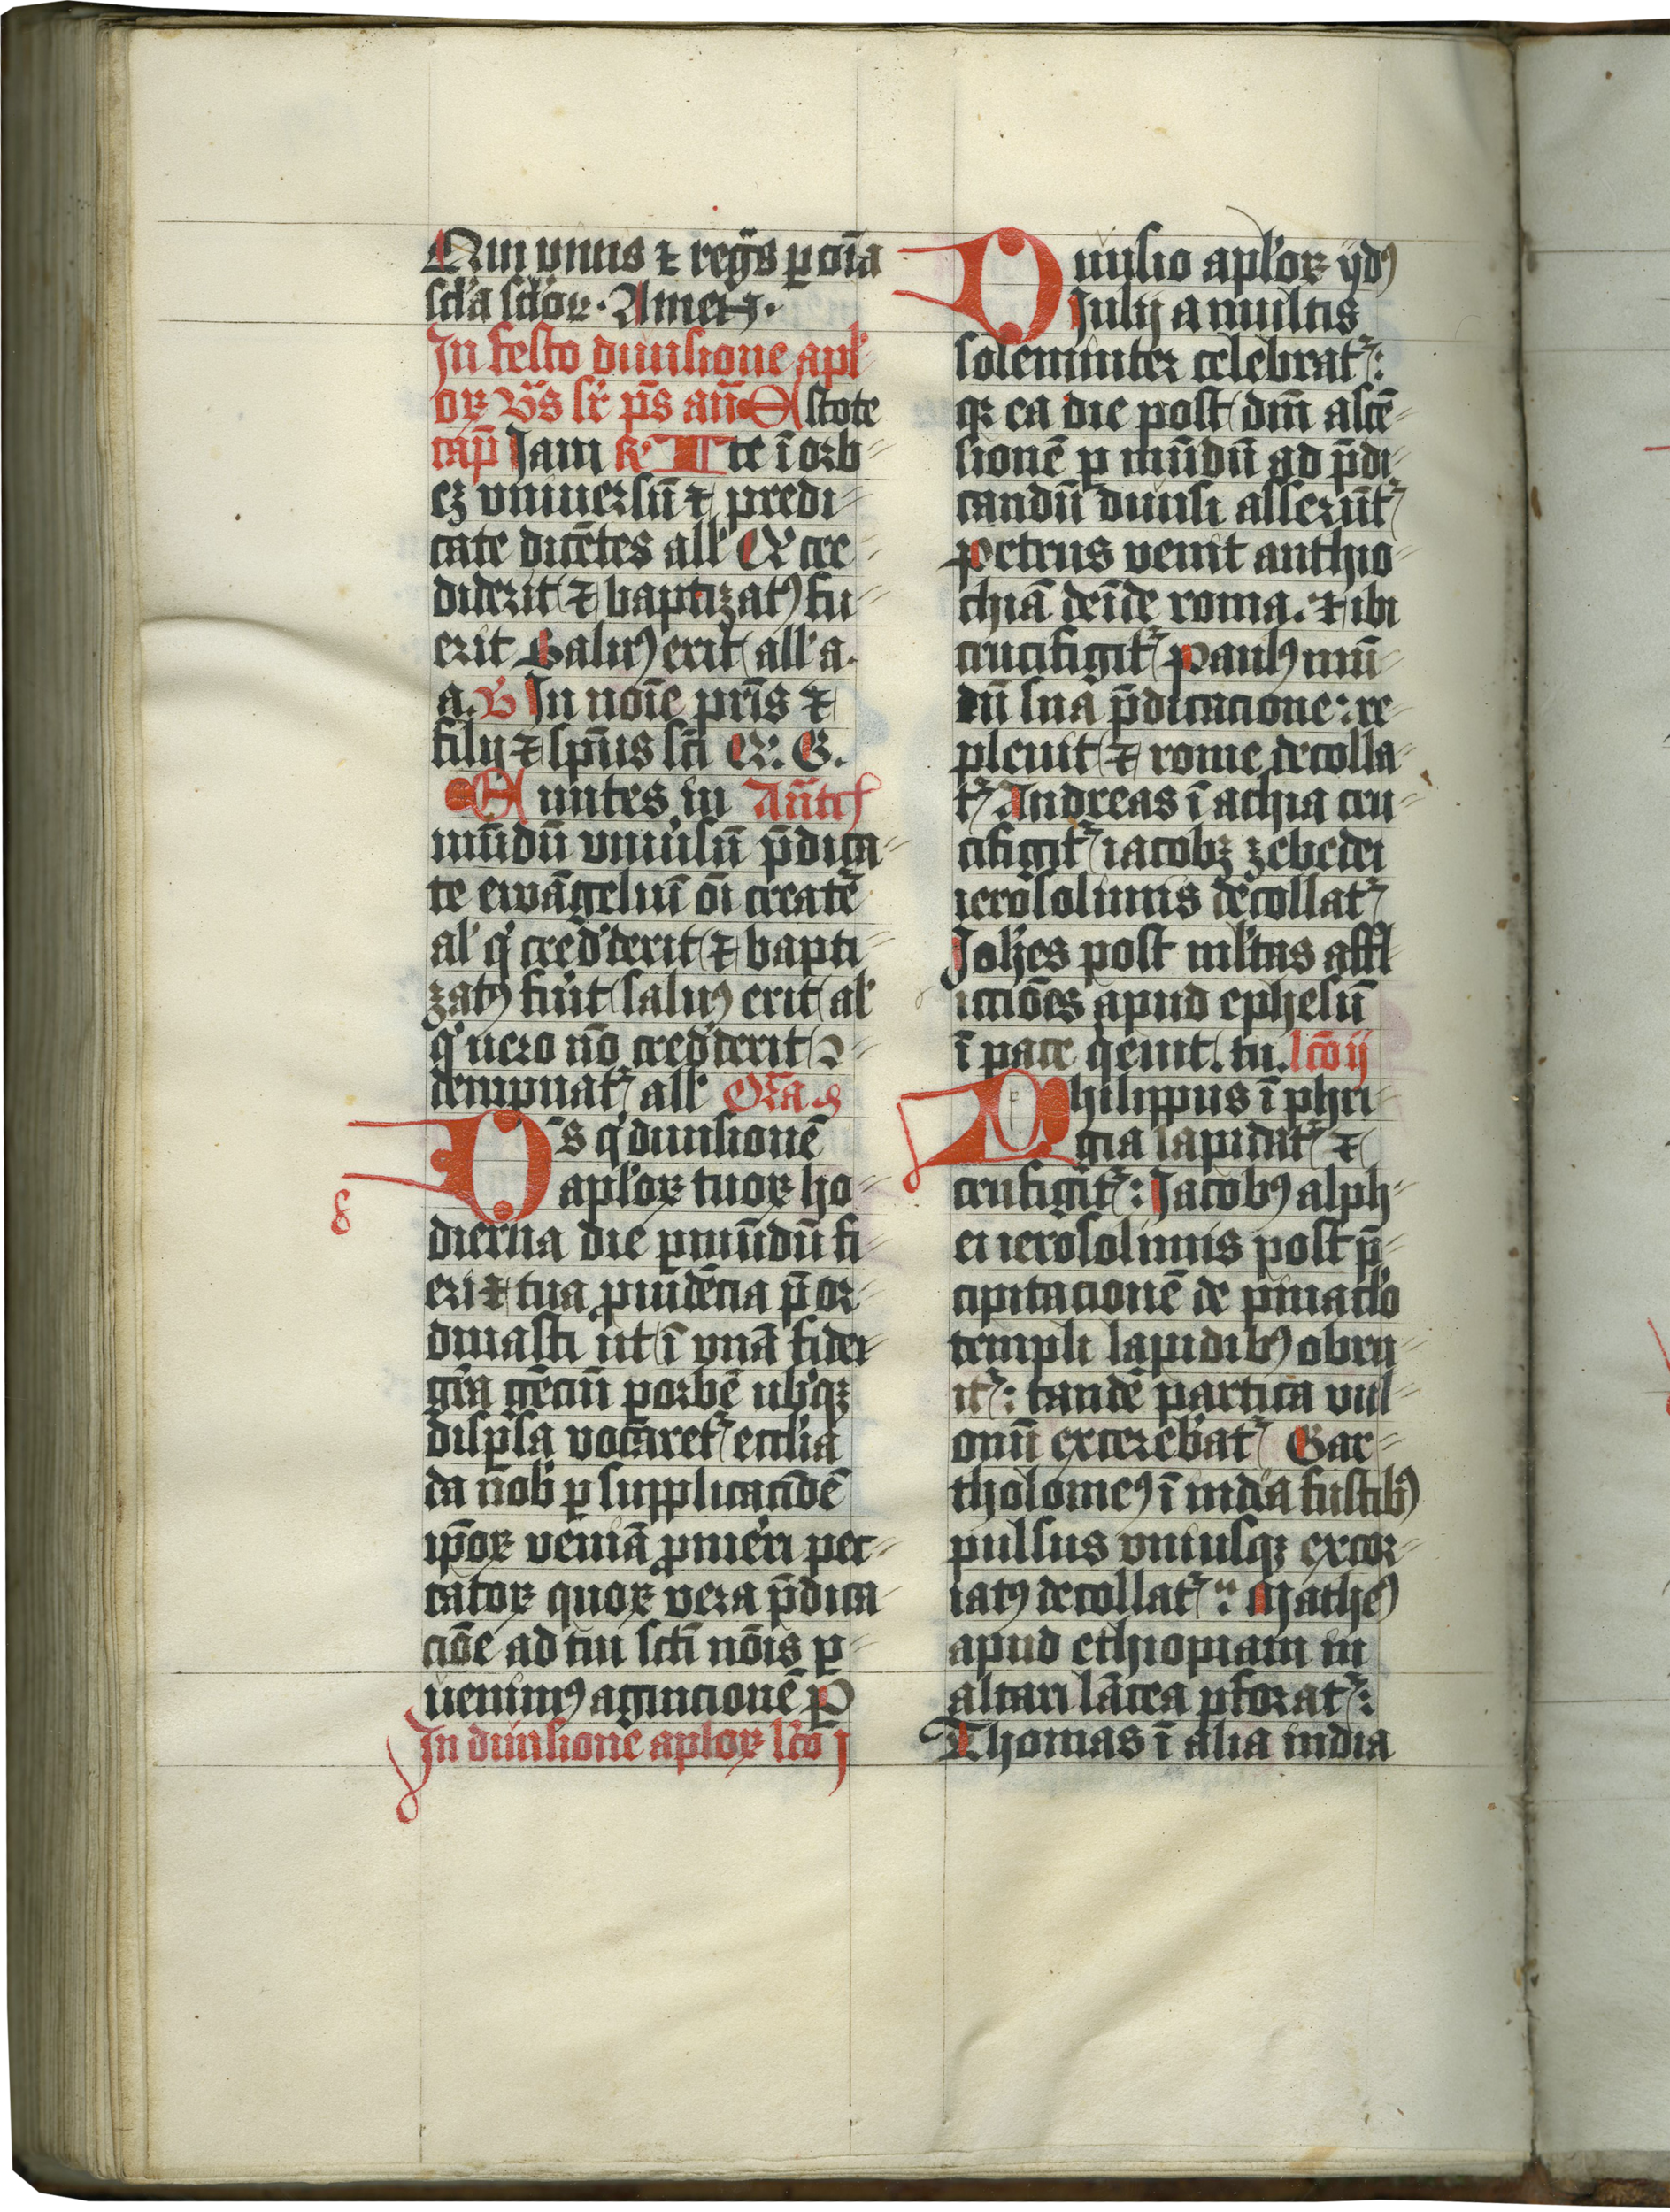 Qui viuis ⁊ regͣs ꝑ oīa
scl'a scl'oꝝ. Amen.
In festo diuisione apl'
oꝝ vs̄ sr̄ ps̄ an̄ Estote
cap̄ Jam ℟ Ite ī orb
eʒ vniuersū ⁊ predi
cate dicētes all' Q̇ cre
diderit ⁊ baptizatꝰ fu
erit Saluꝰ erit all'a.
a. V In noīe pr̄is ⁊
filij ⁊ sp̄us sc̄i Q̇. G.
Euntes in An̄tē
mūdū vniu'sū p̄dica
te ewāgeliū oī creatē
al' q' cred'derit ⁊ bapti
zatꝰ fu'it saluꝰ erit al'
q' uero nō cred'derit ↄ
dempnat᷑ all' Or̄a
D's q' diuisionē
apl'oꝝ tuoꝝ ho
dierna die ꝑ mūdū fi
eri ⁊ tua ꝓuidēcia p̄or
dinasti ut ī vnā fidei
gr̄a gēciū ꝑ orbē ub'qꝫ
disꝑsa vocaret᷑ eccl'ia
da nob' ꝑ supplicac̄ōē
ip̄oꝝ veniā ꝓmeri pec
catoꝝ quoꝝ vera p̄dica
ciōe ad tui sc̄i nōis ꝑ
uenimꝰ agnicionē P
In diuisione aploꝝ lc̄o j
8
Diuisio apl'oꝝ ijdꝰ
Julij a multis
solemniter celebrat᷑:
qꝫ ea die post dn̄i ascē
sionē ꝑ mūdū ad p̄di
candū diuisi asserūt᷑
Petrus venit anthio
chiā deīde roma. ⁊ ibi
crucifigit᷑ Paulꝰ mū
dū sua p̄dicacione: re
pleuit ⁊ rome decolla
t᷑ Andreas ī achia cru
cifigit᷑ iacobꝫ zebedei
ierosolimis decollat᷑
Joh'es post ml'tas affl
icciōes apud ephesū
ī pace q'euit. tu. lc̄o ij
Philippus ī phri
gia lapidat᷑ ⁊
crufigit᷑: Jacobꝰ alph
ei ierosolimis post p̄
cipitacionē de pinacl'o
templi lapidibꝰ obru
it᷑: tandē partica vul
onū excerebat᷑ Bar
tholomeꝰ ī india fustibꝰ
pulsus vniusqꝫ excor
iatꝰ decollat᷑: Matheꝰ
apud ethiopiam in
altari lācea ꝑforat᷑:
Thomas ī alia india